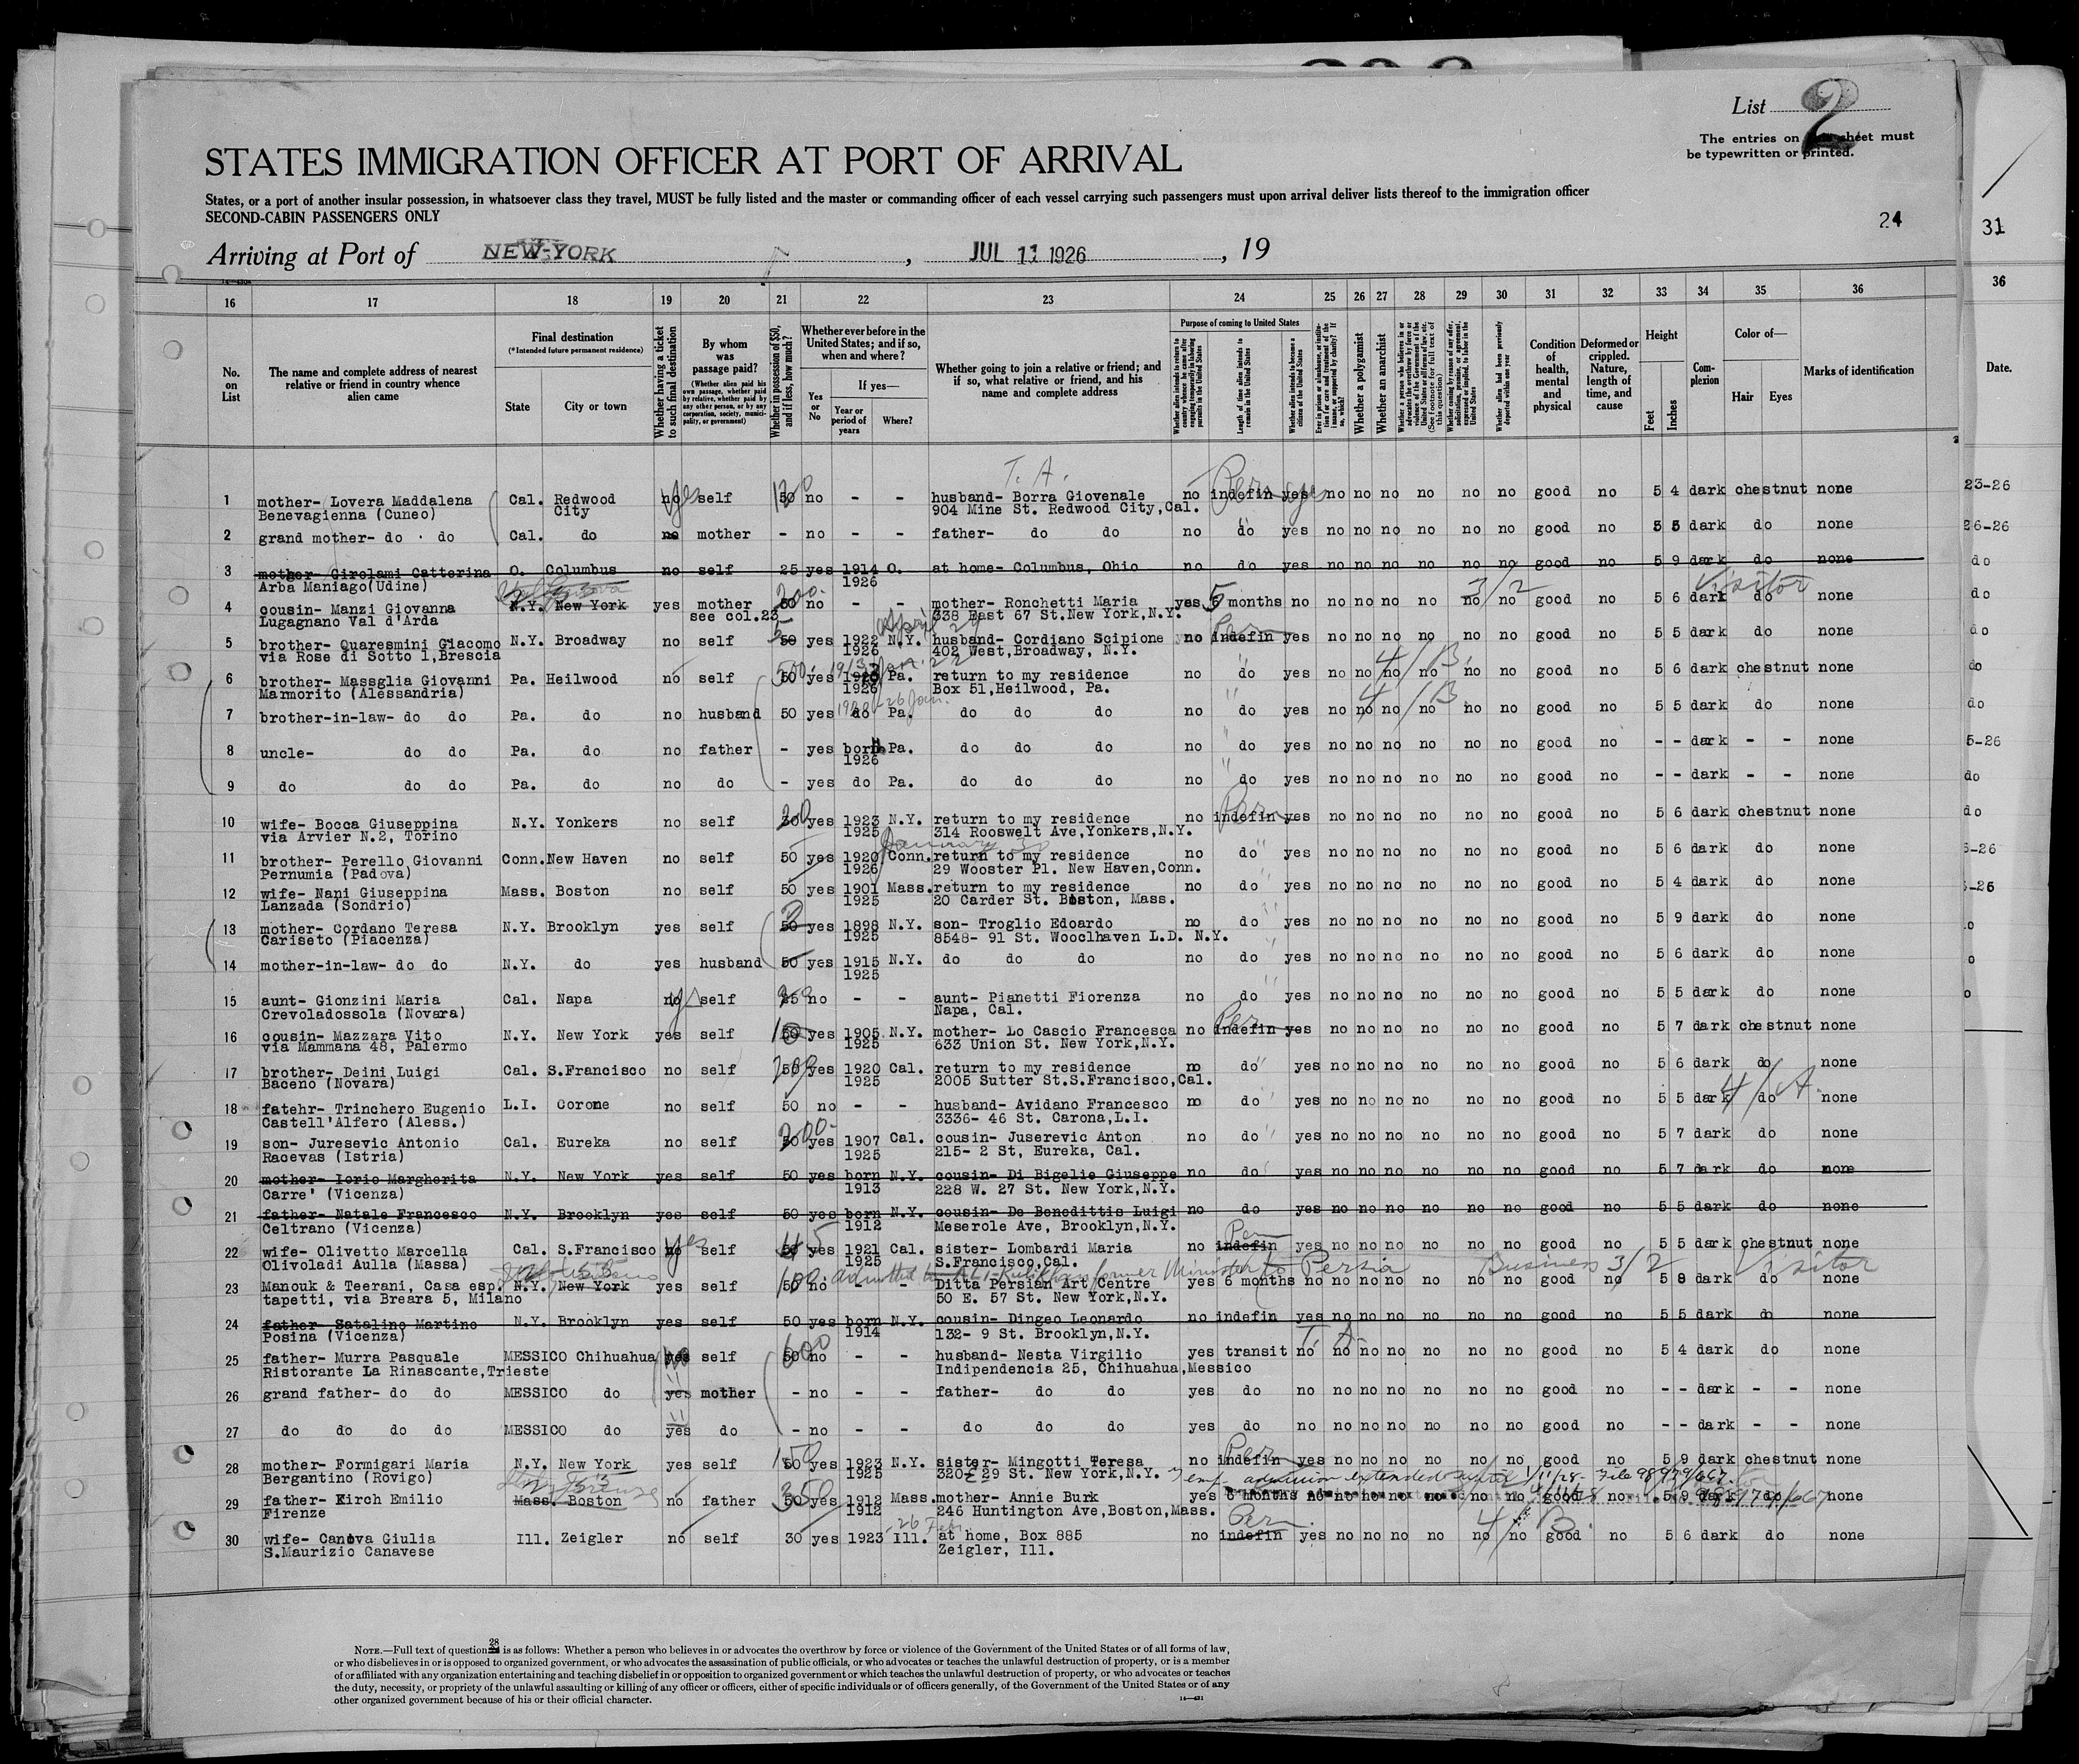 List 2
The entries on sheet must
be typewritten or printed.
STATES IMMIGRATION OFFICER AT PORT OF ARRIVAL
States, or a port of another insular possession, in whatsoever class they travel, MUST be fully listed and the master or commanding officer of each vessel carrying such passengers must upon arrival deliver lists thereof to the immigration officer
SECOND-CABIN PASSENGERS ONLY
24
31
Arriving at Port of NEW-YORK, JUL 11 1926, 19
16 17 18 19 20 21 22 23 24 25 26 27 28 29 30 31 32 33 34 35 36
36
No. on List
The name and complete address of nearest relative or friend in country whence alien came
Final destination
(*Intended future permanent residence)
State
City or town
Whether having a ticket to such final destination
By whom was passage paid?
(Whether alien paid his own passage, whether paid by relative, whether paid by any other person, or by any corporation, society, municipality, or government)
Whether in possession of $50, and if less, how much?
Whether ever before in the United States; and if so, when and where?
Yes or No
If yes—
Year or period of years
Where?
Whether going to join a relative or friend; and if so, what relative or friend, and his name and complete address
Purpose of coming to United States
Length of time alien intends to remain in the United States
Whether alien intends to become a citizen of the United States
Whether a polygamist
Whether an anarchist
Condition of health, mental and physical
Deformed or crippled. Nature, length of time, and cause
Height
Feet
Inches
Complexion
Color of—
Hair
Eyes
Marks of identification
Date.
T. A.
1 mother- Lovera Maddalena Cal. Redwood no yes self 50 no - - husband- Borra Giovenale no indefin yes no no no no no no good no 5 4 dark chestnut none
Benevagienna (Cuneo) City 904 Mine St. Redwood City,Cal.
2 grand mother- do do Cal. do no mother - no - - father- do do no do yes no no no no no no good no 5 5 dark do none
3 mother- Girolami Catterina O. Columbus no self 25 yes 1914 O. at home- Columbus, Ohio no do yes no no no no no no good no 5 9 dark do none
Arba Maniago(Udine) 1926
3/2 Visitor
4 cousin- Manzi Giovanna N.Y. New York yes mother 50 no - - mother- Ronchetti Maria yes 5 months no no no no no no no good no 5 6 dark do none
Lugagnano Val d'Arda see col.23 338 East 67 St.New York,N.Y.
5 brother- Quaresmini Giacomo N.Y. Broadway no self 50 yes 1922 N.Y. husband- Cordiano Scipione no indefin yes no no no no no no good no 5 5 dark do none
via Rose di Sotto 1,Brescia 1926 402 West,Broadway, N.Y.
4/B.
6 brother- Masseglia Giovanni Pa. Heilwood no self 50 yes Pa. return to my residence no do yes no no no no no no good no 5 6 dark chestnut none
Marmorito (Alessandria) 1926 Box 51,Heilwood, Pa.
4/B.
7 brother-in-law- do do Pa. do no husband 50 yes do Pa. do do do no do yes no no no no no no good no 5 5 dark do none
8 uncle- do do Pa. do no father - yes born Pa. do do do no do yes no no no no no no good no - - dark - - none
1926
9 do do do Pa. do no do - yes do Pa. do do do no do yes no no no no no no good no - - dark - - none
10 wife- Bocca Giuseppina N.Y. Yonkers no self yes 1923 N.Y. return to my residence no indefin yes no no no no no no good no 5 6 dark chestnut none
via Arvier N.2, Torino 1925 314 Rooswelt Ave,Yonkers,N.Y.
January 30
11 brother- Perello Giovanni Conn. New Haven no self 50 yes 1920 Conn. return to my residence no do yes no no no no no no good no 5 6 dark do none
Pernumia (Padova) 1926 29 Wooster Pl. New Haven,Conn.
12 wife- Nani Giuseppina Mass. Boston no self 50 yes 1901 Mass. return to my residence no do yes no no no no no no good no 5 4 dark do none
Lanzada (Sondrio) 1925 20 Carder St. Boston, Mass.
13 mother- Cordano Teresa N.Y. Brooklyn yes self 50 yes 1898 N.Y. son- Troglio Edoardo no do yes no no no no no no good no 5 9 dark do none
Cariseto (Piacenza) 1925 8548- 91 St. Wooclhaven L.D. N.Y.
14 mother-in-law- do do N.Y. do yes husband 50 yes 1915 N.Y. do do do no do yes no no no no no no good no 5 6 dark do none
1925
15 aunt- Gionzini Maria Cal. Napa no self no - - aunt- Pianetti Fiorenza no do yes no no no no no no good no 5 5 dark do none
Crevoladossola (Novara) Napa, Cal.
16 cousin- Mazzara Vito N.Y. New York yes self 50 yes 1905 N.Y. mother- Lo Cascio Francesca no indefin yes no no no no no no good no 5 7 dark chestnut none
via Mammana 48, Palermo 1925 633 Union St. New York,N.Y.
17 brother- Deini Luigi Cal. S.Francisco no self 50 yes 1920 Cal. return to my residence no do yes no no no no no no good no 5 6 dark do none
Baceno (Novara) 1925 2005 Sutter St.S.Francisco,Cal.
4/A.
18 fatehr- Trinchero Eugenio L.I. Corone no self 50 no - - husband- Avidano Francesco no do yes no no no no no no good no 5 5 dark do none
Castell'Alfero (Aless.) 3336- 46 St. Carona,L.I.
19 son- Juresevic Antonio Cal. Eureka no self 50 yes 1907 Cal. cousin- Juserevic Anton no do yes no no no no no no good no 5 7 dark do none
Racevas (Istria) 1925 215- 2 St, Eureka, Cal.
20 mother- Iorio Margherita N.Y. New York yes self 50 yes born N.Y. cousin- Di Bigelie Giuseppe no do yes no no no no no no good no 5 7 dark do none
Carre' (Vicenza) 1913 228 W. 27 St. New York,N.Y.
21 father- Natale Francesco N.Y. Brooklyn yes self 50 yes born N.Y. cousin- De Benedittis Luigi no do yes no no no no no no good no 5 5 dark do none
Celtrano (Vicenza) 1912 Meserole Ave, Brooklyn,N.Y.
22 wife- Olivetto Marcella Cal. S.Francisco no yes self 45 yes 1921 Cal. sister- Lombardi Maria no indefin yes no no no no no no good no 5 5 dark chestnut none
Olivoladi Aulla (Massa) 1925 S.Francisco,Cal.
former Minister to Persia Business 3/2 Visitor
23 Manouk & Teerani, Casa esp. N.Y. New York yes self 50 no - - Ditta Persian Art Centre yes 6 months no no no no no no no good no 5 8 dark do none
tapetti, via Breara 5, Milano 50 E. 57 St. New York,N.Y.
24 father- Satalino Martino N.Y. Brooklyn yes self 50 yes born N.Y. cousin- Dingeo Leonardo no indefin yes no no no no no no good no 5 5 dark do none
Posina (Vicenza) 1914 132- 9 St. Brooklyn,N.Y.
T. A.
25 father- Murra Pasquale MESSICO Chihuahua self 50 600 no - - husband- Nesta Virgilio yes transit no no no no no no no good no 5 4 dark do none
Ristorante La Rinascante,Trieste Indipendencia 25, Chihuahua,Messico
26 grand father- do do MESSICO do yes mother - no - - father- do do yes do no no no no no no no good no - - dark - - none
27 do do do do MESSICO do yes do - no - - do do do yes do no no no no no no no good no - - dark - - none
28 mother- Formigari Maria N.Y. New York yes self 50 yes 1923 N.Y. sister- Mingotti Teresa no indefin yes no no no no no no good no 5 9 dark chestnut none
Bergantino (Rovigo) 1925 320 E 29 St. New York,N.Y. Temp. admission extended
29 father- Kirch Emilio Mass. Boston no father 50 350 yes 1912 Mass. mother- Annie Burk yes 6 months no no no no no no no good no 5 9 dark do none
Firenze 1912 246 Huntington Ave,Boston,Mass.
Per. 4/B.
30 wife- Canova Giulia Ill. Zeigler no self 30 yes 1923 Ill. at home, Box 885 no indefin yes no no no no no no good no 5 6 dark do none
S.Maurizio Canavese Zeigler, Ill.
NOTE.—Full text of question 28 is as follows: Whether a person who believes in or advocates the overthrow by force or violence of the Government of the United States or of all forms of law,
or who disbelieves in or is opposed to organized government, or who advocates the assassination of public officials, or who advocates or teaches the unlawful destruction of property, or is a member
of or affiliated with any organization entertaining and teaching disbelief in or opposition to organized government or which teaches the unlawful destruction of property, or who advocates or teaches
the duty, necessity, or propriety of the unlawful assaulting or killing of any officer or officers, either of specific individuals or of officers generally, of the Government of the United States or of any
other organized government because of his or their official character.
23-26
26-26
do
do
do
do
do
5-26
do
do